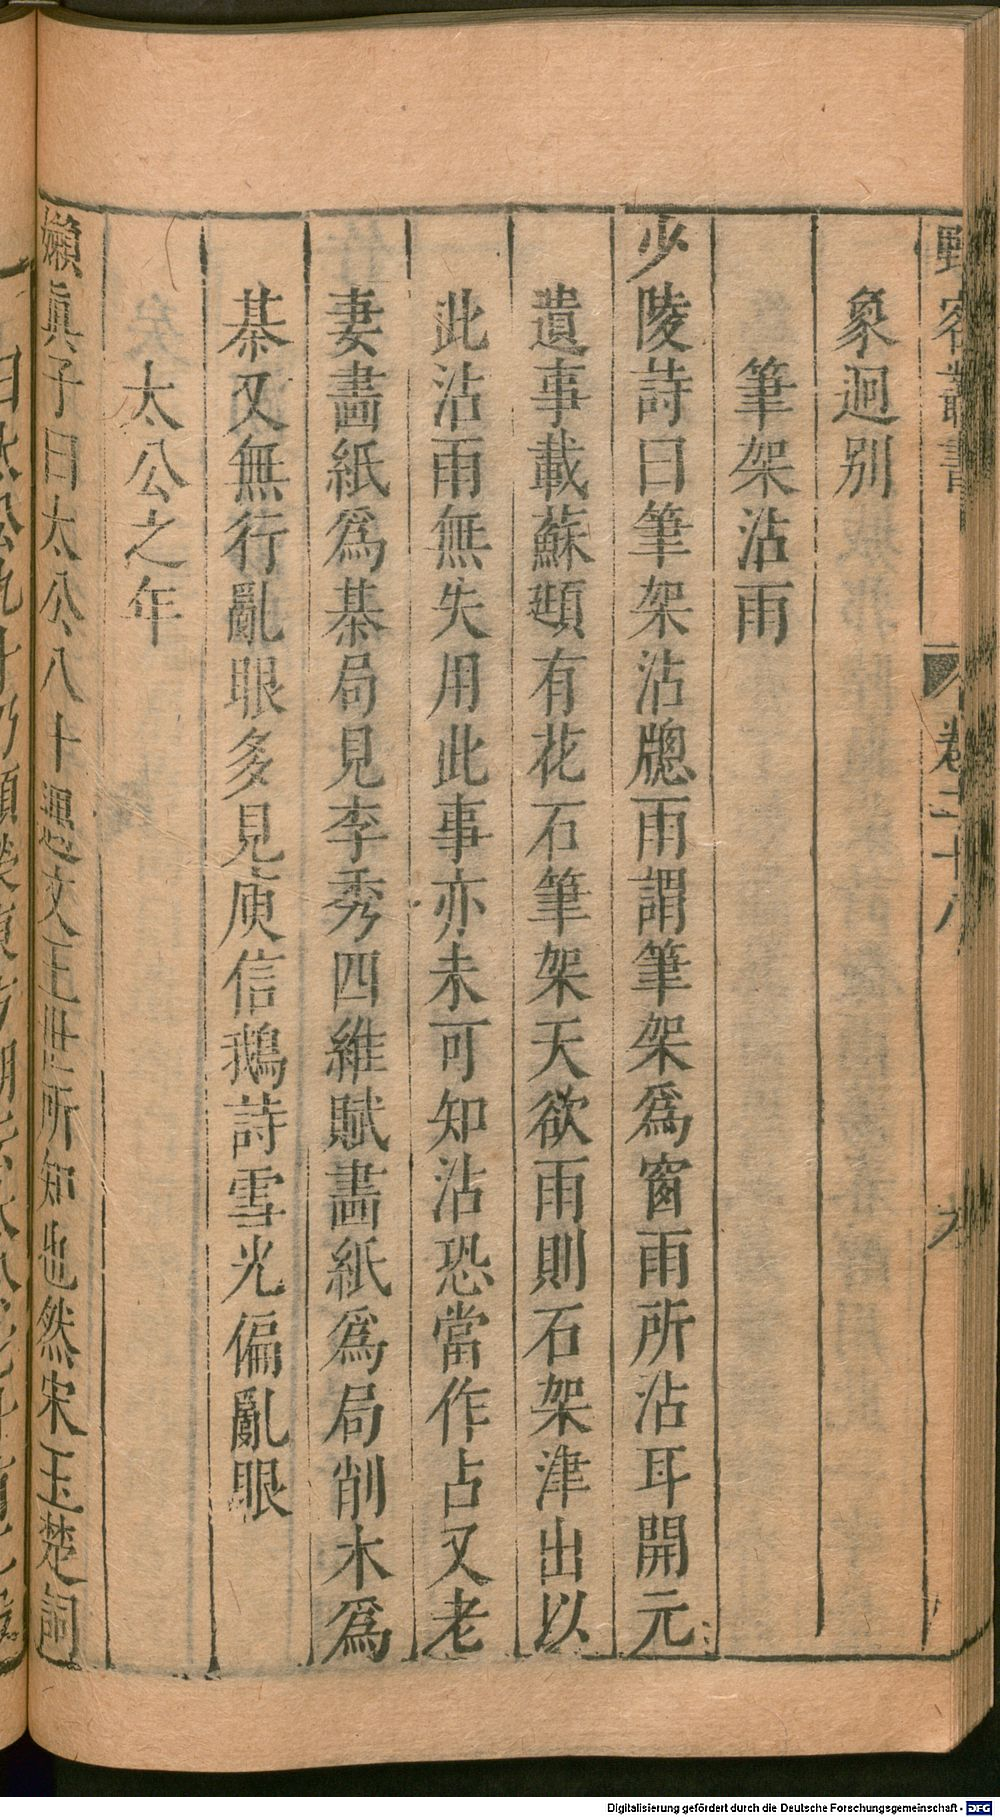 野客叢書
卷二十八
九
象迥別
筆架沾雨
少陵詩曰筆架沾牕雨謂筆架爲窗雨所沾耳開元
遺事載蘇頲有花石筆架天欲雨則石架津出以
此沾雨無失用此事亦未可知沾恐當作占又老
妻畵紙爲棊局見李秀四維賦畵紙爲局削木爲
棊又無行亂眼多見庾信鵝詩雪光偏亂眼
太公之年
嬾真子曰太公八十遇文王世所知也然宋玉楚詞
Digitalisierung gefördert durch die Deutsche Forschungsgemeinschaft - DFG